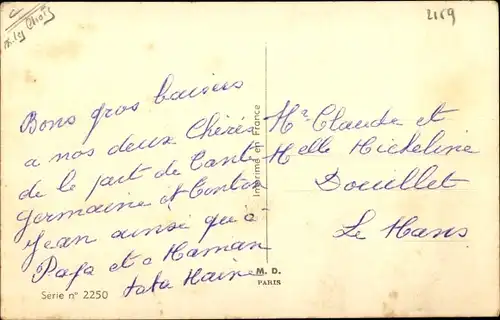 2169
Bons gros baisers
a nos deux Chéris
de le part de Tante
Germaine et Tonton
Jean ainsi qu'a
Papa et a Maman
tata Haine
Mr Claude et
Melle Micheline
Douillet
Le Mans
Imprimé en France
Série n° 2250
M. D.
PARIS